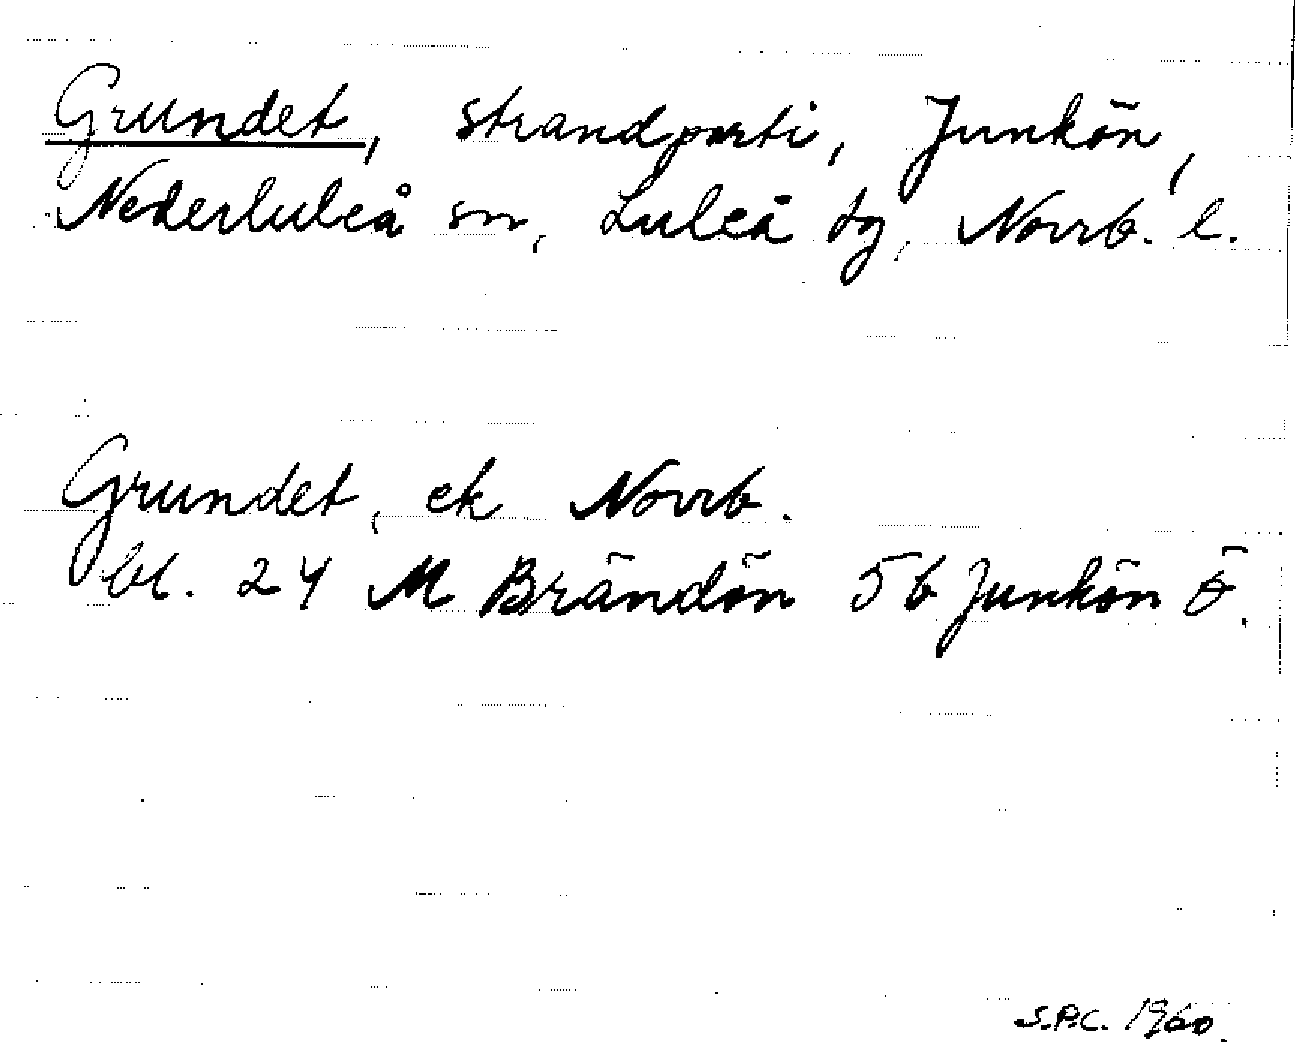 Grundet, strandparti, Junkön,
Nederluleå sn, Luleå tg, Norrb. l.
Grundet, ek Norrb.
bl. 24 M Brändön 5b Junkön Ö.
S.B.C. 1960.